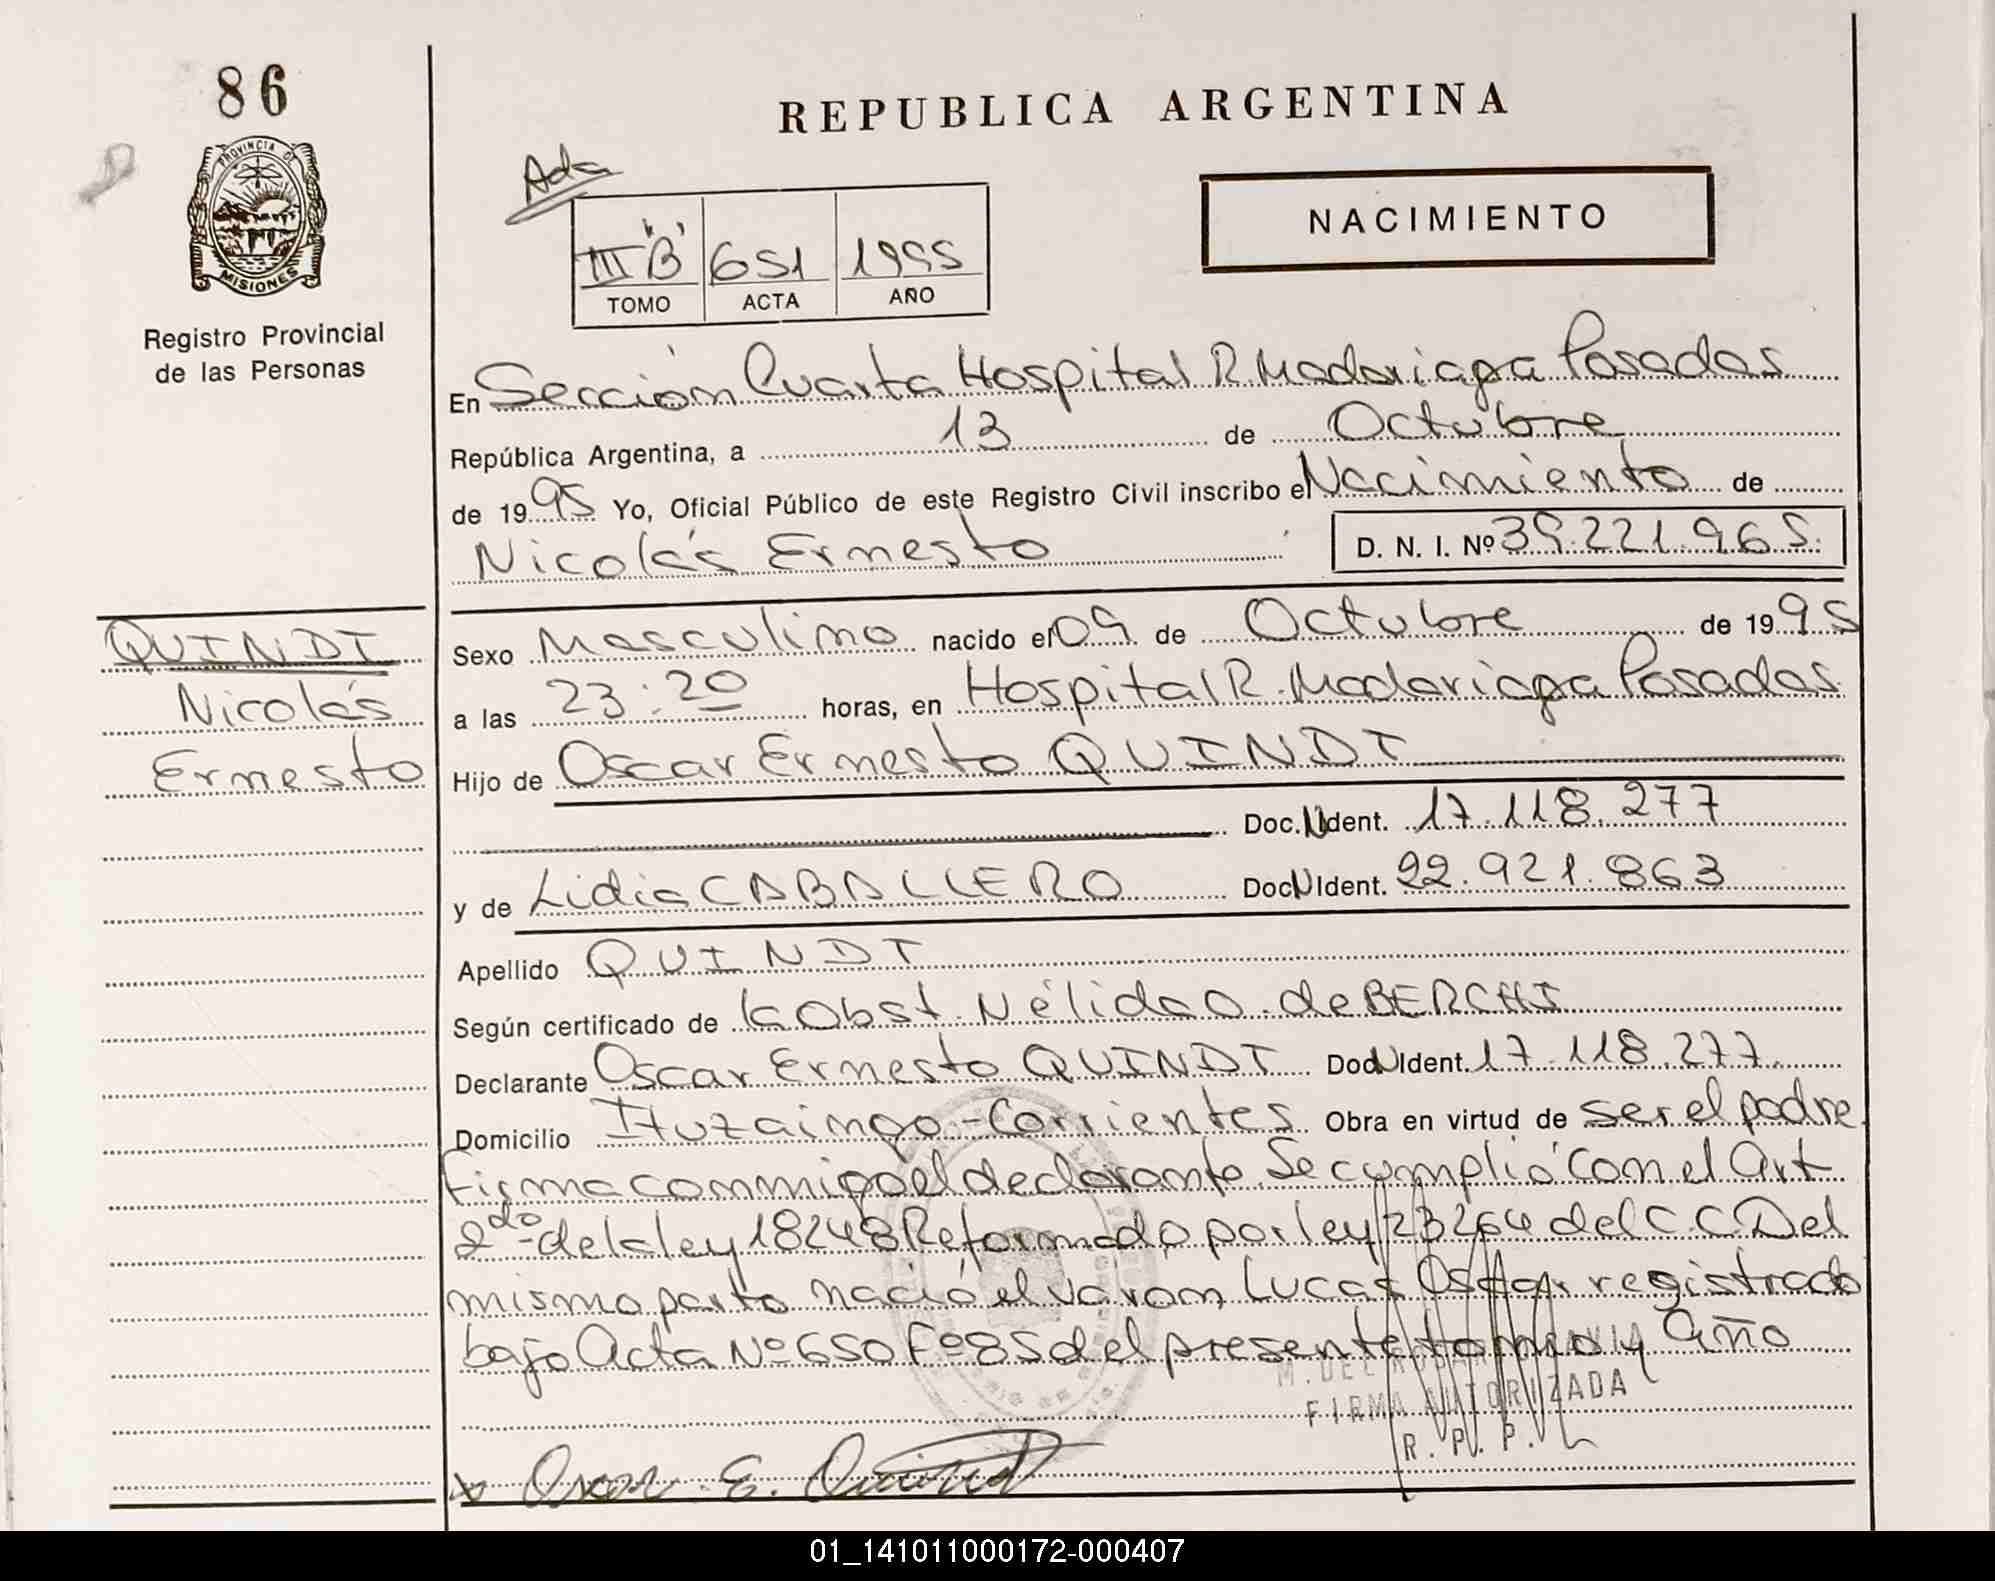 86
REPUBLICA ARGENTINA
PROVINCIA DE
MISIONES
Registro Provincial
de las Personas
Ada
III "B" 651 1995
TOMO ACTA AÑO
NACIMIENTO
En Sección Cuarta Hospital R. Madariaga Posadas
República Argentina, a 13 de Octubre
de 1995 Yo, Oficial Público de este Registro Civil inscribo el Nacimiento de
Nicolás Ernesto D. N. I. Nº 39.221.965.
QUINDT
Nicolás
Ernesto
Sexo Masculino nacido el 09 de Octubre de 1995
a las 23:20 horas, en Hospital R. Madariaga Posadas.
Hijo de Oscar Ernesto QUINDT
Doc.NIdent. 17.118.277
y de Lidia CABALLERO Doc.NIdent. 22.921.863
Apellido QUINDT
Según certificado de la Obst. Nélida O. de BERCHI
Declarante Oscar Ernesto QUINDT Doc.NIdent. 17.118.277.
Domicilio Ituzaingo-Corrientes Obra en virtud de ser el padre
Firma conmigo el declarante. Se cumplió con el Art
2do de la ley 18248 Reformado por ley 23264 del C.C. Del
mismo parto nació el varon Lucas Oscar registrado
bajo Acta Nº 650 Fº 85 del presente tomo y año
M. DEL
FIRMA AUTORIZADA
R. P. P.
x Oscar E. Quindt
01_141011000172-000407